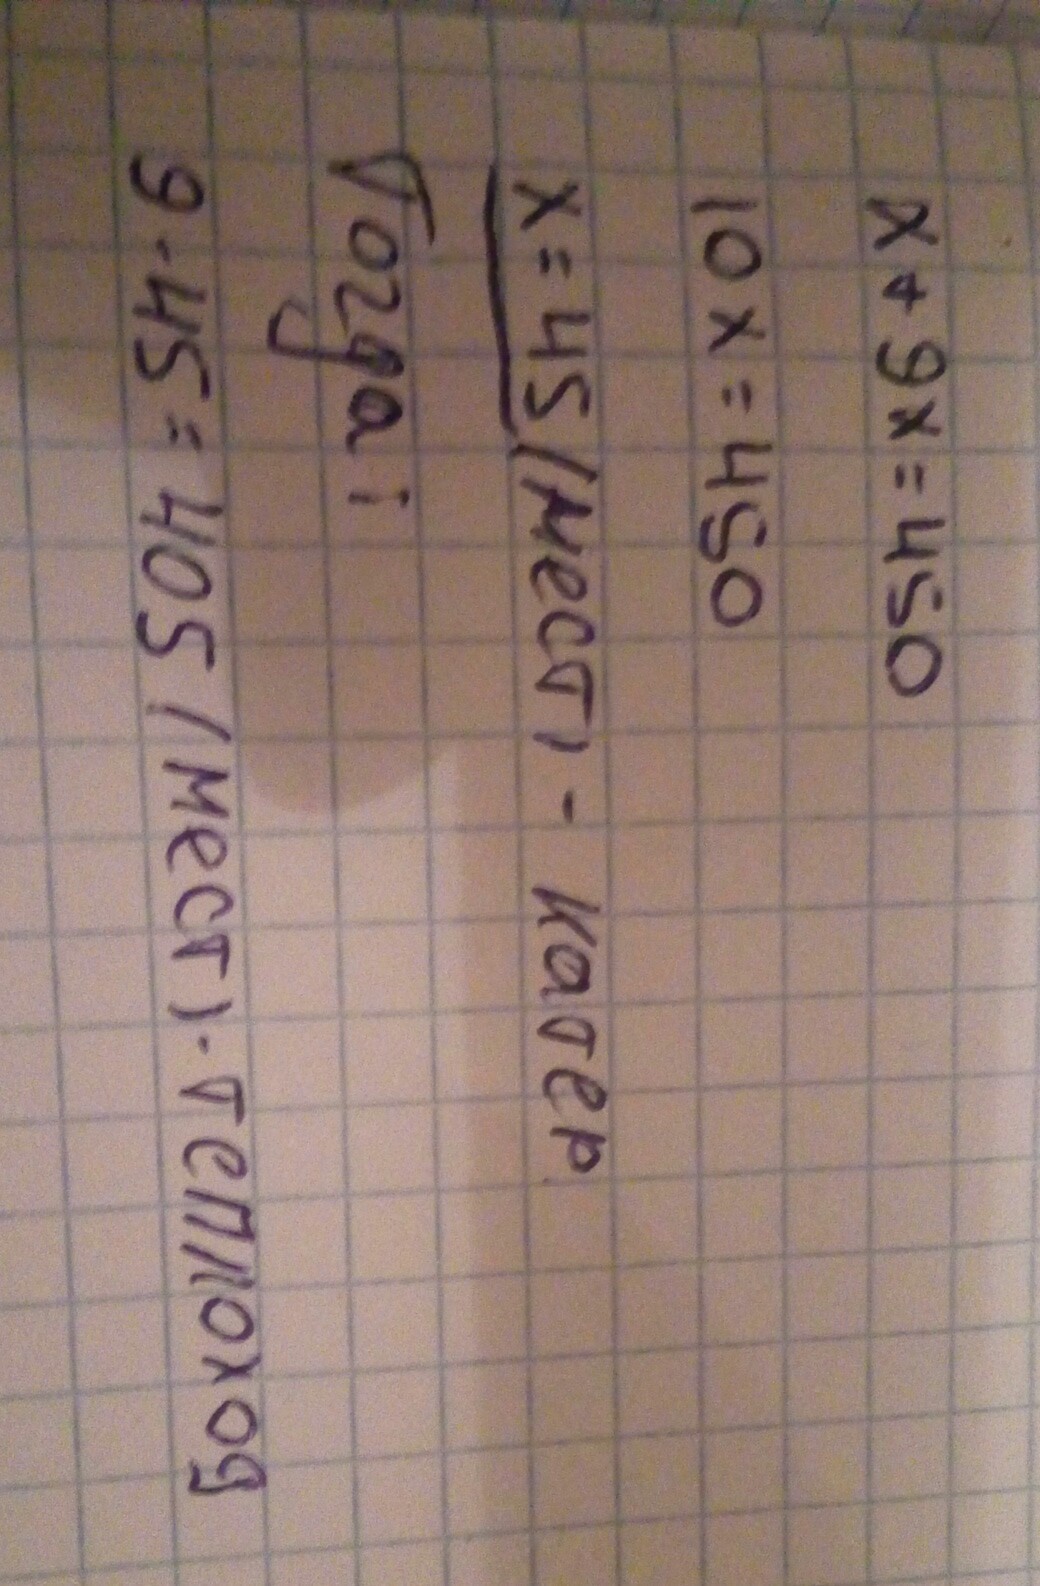 x+9x=450
10x=450
x=45(мест)-катер
Тогда:
9·45=405(мест)-теплоход